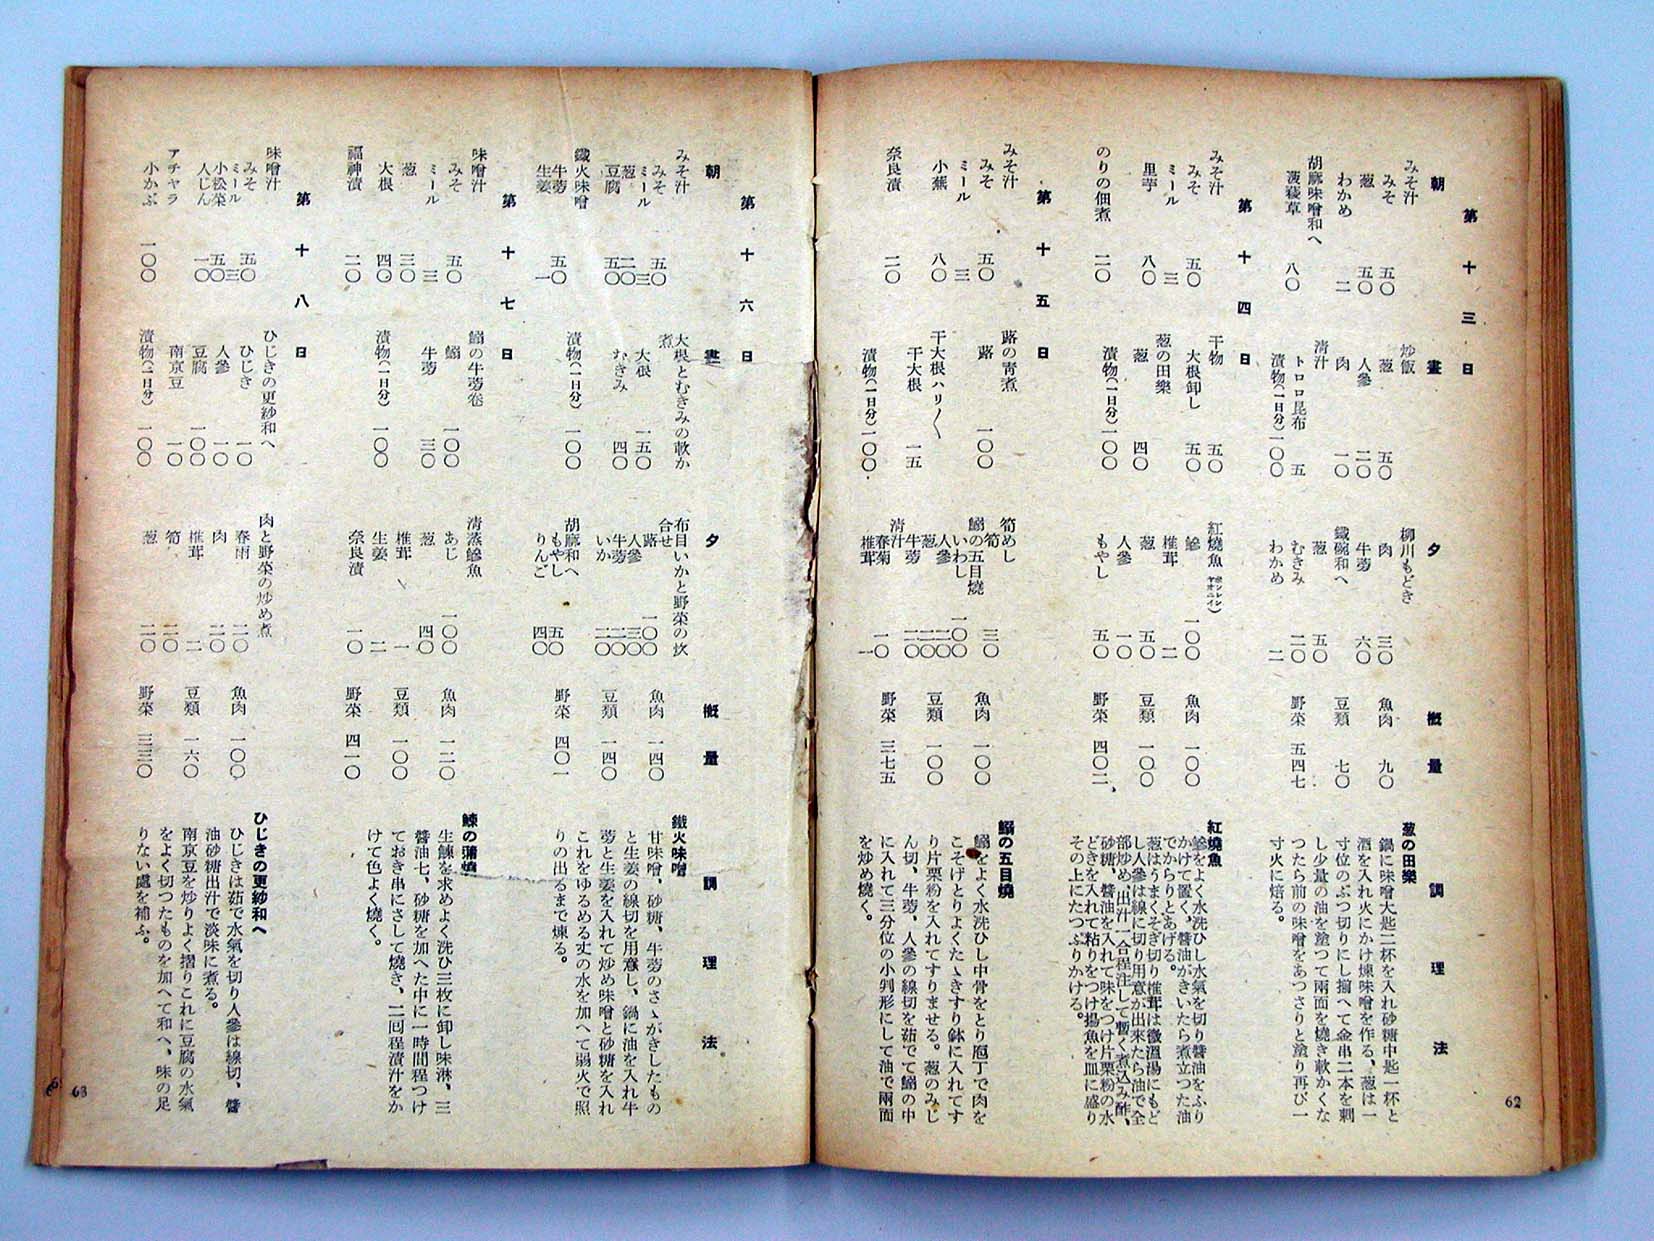 第十三日
朝
みそ汁
みそ 五〇
葱 五〇
わかめ 二
胡麻味噌和へ
菠薐草 八〇
晝
炒飯
葱 五〇
人參 二〇
肉 一〇
淸汁
トロロ昆布 五
漬物(一日分)一〇〇
夕
柳川もどき
肉 三〇
牛蒡 六〇
鐵碗和へ
葱 五〇
むきみ 二〇
わかめ 二
概量
魚肉 九〇
豆類 七〇
野菜 五四七
調理法
葱の田樂
鍋に味噌大匙二杯を入れ砂糖中匙一杯と
酒を入れ火にかけ煉味噌を作る、葱は一
寸位のぶつ切りにし揃へて金串二本を刺
し少量の油を塗つて兩面を燒き軟かくな
つたら前の味噌をあつさりと塗り再び一
寸火に焙る。
第十四日
みそ汁
みそ 五〇
ミール 三
里芋 八〇
のりの佃煮 二〇
干物 五〇
大根卸し 五〇
葱の田樂
葱 四〇
漬物(一日分)一〇〇
紅燒魚
鰺 一〇〇
椎茸 二
葱 五〇
人參 一〇
もやし 五〇
魚肉 一〇〇
豆類 一〇〇
野菜 四〇二
紅燒魚
鰺をよく水洗ひし水氣を切り醬油をふり
かけて置く、醬油がきいたら煮立つた油
でからりとあげる。
葱はうまくそぎ切り椎茸は微溫湯にもど
し人參は線に切り用意が出來たら油で全
部炒め出汁一合程注して暫く煮込み酢、
砂糖、醬油を入れて味をつけ片栗粉の水
どきを入れて粘りをつけ揚魚を皿に盛り
その上にたつぷりかける。
第十五日
みそ汁
みそ 五〇
ミール 三
小蕪 八〇
奈良漬 二〇
蕗の靑煮
蕗 一〇〇
干大根ハリ〳〵
干大根 一五
漬物(一日分)一〇〇
筍めし
筍 三〇
鰯の五目燒
いわし 一〇〇
人參 二〇
葱 二〇
牛蒡 二〇
淸汁
春菊 一〇
椎茸 一
魚肉 一〇〇
豆類 一〇〇
野菜 三七五
鰯の五目燒
鰯をよく水洗ひし中骨をとり庖丁で肉を
こそげとりよくたゝきすり鉢に入れてす
り片栗粉を入れてすりませる。葱のみじ
ん切、牛蒡、人參の線切を茹でて鰯の中
に入れて三分位の小判形にして油で兩面
を炒め燒く。
62
第十六日
朝
みそ汁
みそ 五〇
ミール 三
葱 二〇
豆腐 五〇
鐵火味噌
牛蒡 五〇
生姜 一
晝
大根とむきみの軟か
煮
大根 一五〇
むきみ 四〇
漬物(一日分) 一〇〇
夕
布目いかと野菜の炊
合せ
蕗 一〇〇
人參 三〇
牛蒡 二〇
いか 一〇〇
胡麻和へ
もやし 五〇
りんご 四〇
概量
魚肉 一四〇
豆類 一四〇
野菜 四〇一
調理法
鐵火味噌
甘味噌、砂糖、牛蒡のさゝがきしたもの
と生姜の線切を用意し、鍋に油を入れ牛
蒡と生姜を入れて炒め味噌と砂糖を入れ
これをゆるめる丈の水を加へて弱火で照
りの出るまで煉る。
第十七日
味噌汁
みそ 五〇
ミール 三
葱 三〇
大根 四〇
福神漬 二〇
鰯の牛蒡卷
鰯 一〇〇
牛蒡 三〇
漬物(一日分) 一〇〇
淸蒸鰺魚
あじ 一〇〇
葱 四〇
椎茸 一
生姜 二
奈良漬 一〇
魚肉 一二〇
豆類 一〇〇
野菜 四一〇
鰊の蒲燒
生鰊を求めよく洗ひ三枚に卸し味淋、三
醬油七、砂糖を加へた中に一時間程つけ
ておき串にさして燒き、二回程漬汁をか
けて色よく燒く。
第十八日
味噌汁
みそ 五〇
ミール 三
小松菜 五〇
人じん 一〇
アチャラ
小かぶ 一〇〇
ひじきの更紗和へ
ひじき 一〇
人參 一〇
豆腐 一〇〇
南京豆 一〇
漬物(一日分) 一〇〇
肉と野菜の炒め煮
春雨 二〇
肉 二〇
椎茸 二
筍 二〇
葱 二〇
魚肉 一〇〇
豆類 一六〇
野菜 三三〇
ひじきの更紗和へ
ひじきは茹で水氣を切り人參は線切、醬
油砂糖出汁で淡味に煮る。
南京豆を炒りよく摺りこれに豆腐の水氣
をよく切つたものを加へて和へ、味の足
りない處を補ふ。
63